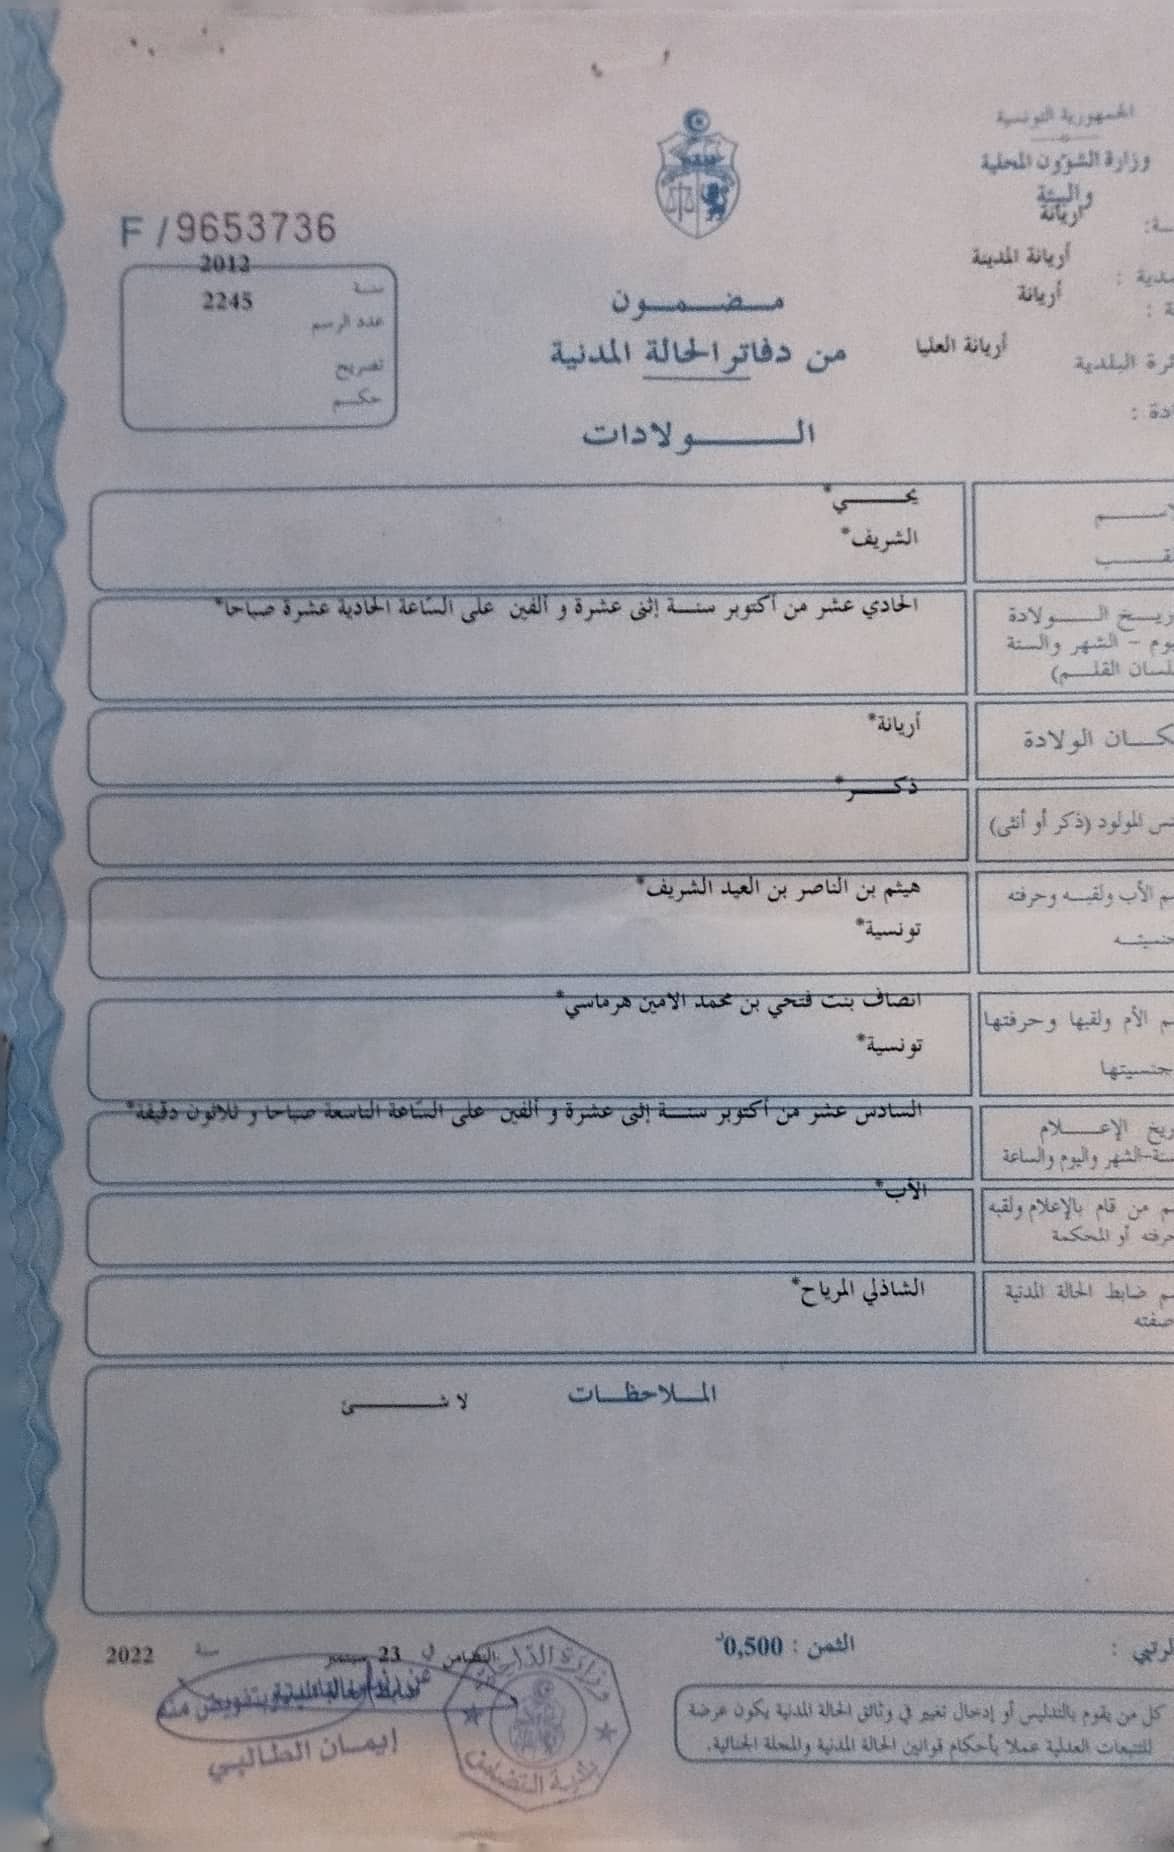 الجمهورية التونسية
وزارة الشؤون المحلية
والبيئة
أريانة
أريانة المدينة
أريانة
أريانة العليا
F / 9653736
2012
سنة
2245
عدد الرسم
تصريح
حكم
مضمون
من دفاتر الحالة المدنية
الولادات
يحي*
الشريف*
تاريخ الولادة
اليوم - الشهر والسنة
بلسان القلم)
الحادي عشر من أكتوبر سنة إثنى عشرة و ألفين على السّاعة الحادية عشرة صباحا*
مكان الولادة
أريانة*
جنس المولود (ذكر أو أنثى)
ذكر*
إسم الأب ولقبه وحرفته
جنسيته
هيثم بن الناصر بن العيد الشريف*
تونسية*
إسم الأم ولقبها وحرفتها
جنسيتها
انصاف بنت فتحي بن محمد الامين هرماسي*
تونسية*
تاريخ الإعلام
السنة-الشهر واليوم والساعة
السادس عشر من أكتوبر سنة إثنى عشرة و ألفين على السّاعة التاسعة صباحا و ثلاثون دقيقة*
إسم من قام بالإعلام ولقبه
حرفته أو المحكمة
الأب*
إسم ضابط الحالة المدنية
صفته
الشاذلي المرياح*
الملاحظات
لا شئ
الثمن : 0,500د
كل من يقوم بالتدليس أو إدخال تغيير في وثائق الحالة المدنية يكون عرضة
للتتبعات العدلية عملا بأحكام قوانين الحالة المدنية والمجلة الجنائية.
التضامن في 23 سبتمبر سنة 2022
بتفويض منه
إيمان الطالبي
وزارة الداخلية
بلدية التضامن